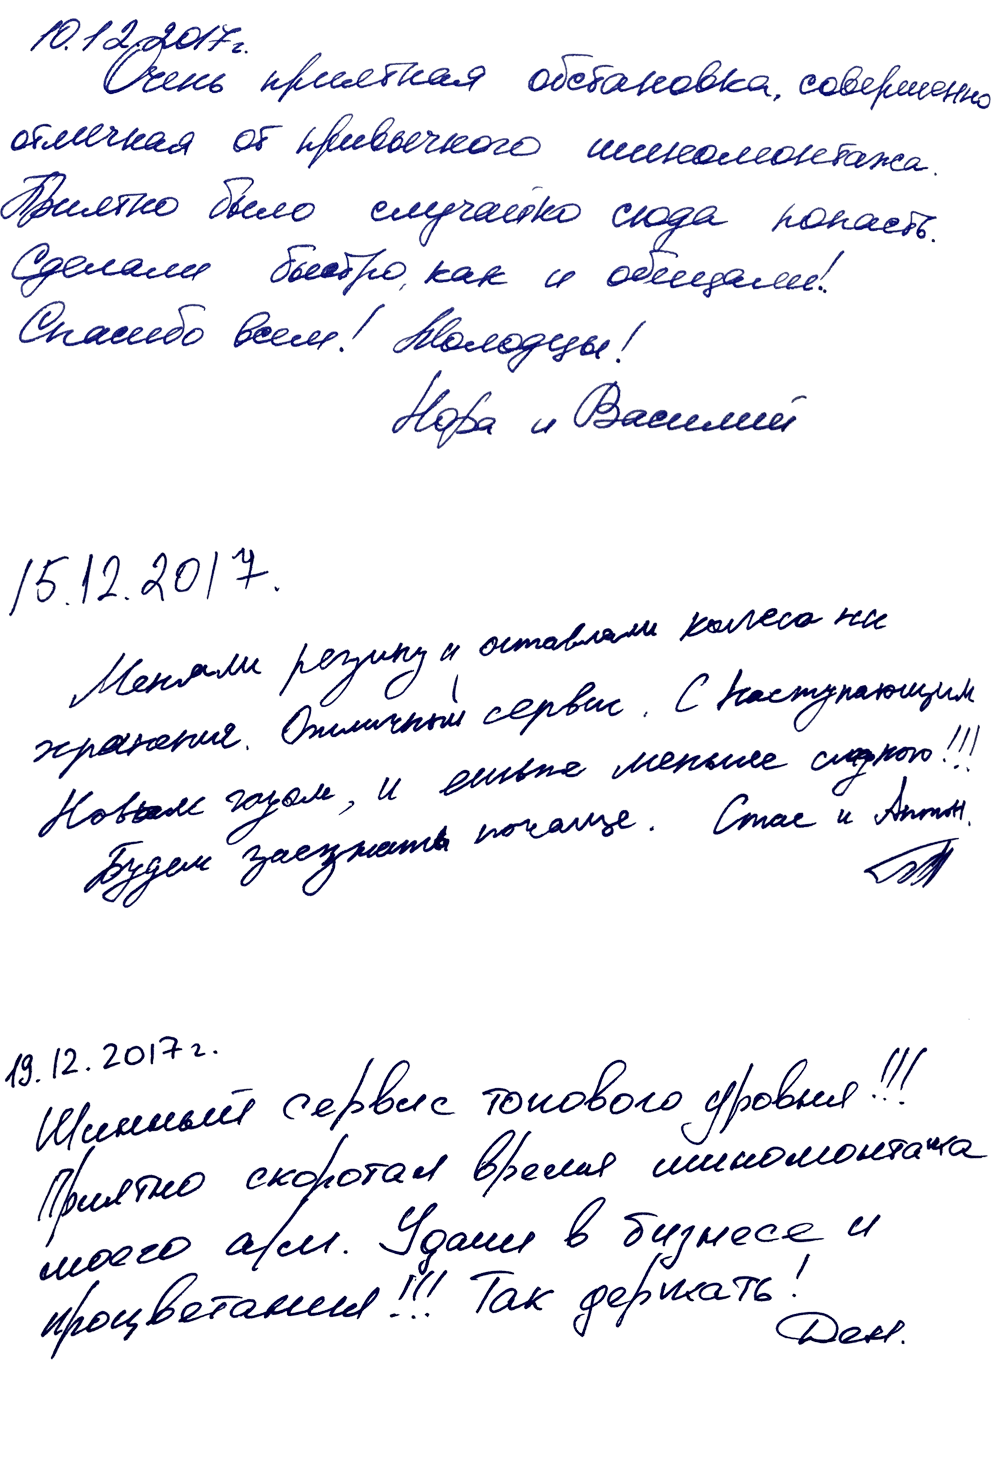 10.12.2017г.
Очень приятная обстановка, совершенно
отличная от привычного шиномонтажа.
Приятно было случайно сюда попасть.
Сделали быстро, как и обещали!
Спасибо всем! Молодцы!
Нора и Василий
15.12.2017.
Меняли резину и оставляли колеса на
хранения. Отличный сервис. С Наступающим
Новым годом, и ешьте меньше сладкого!!!
Будем заезжать почаще. Стас и Антон.
19.12.2017г.
Шинный сервис топового уровня!!!
Приятно скоротал время шиномонтажа
моего а/м. Удачи в бизнесе и
процветания!!! Так держать!
Ден.